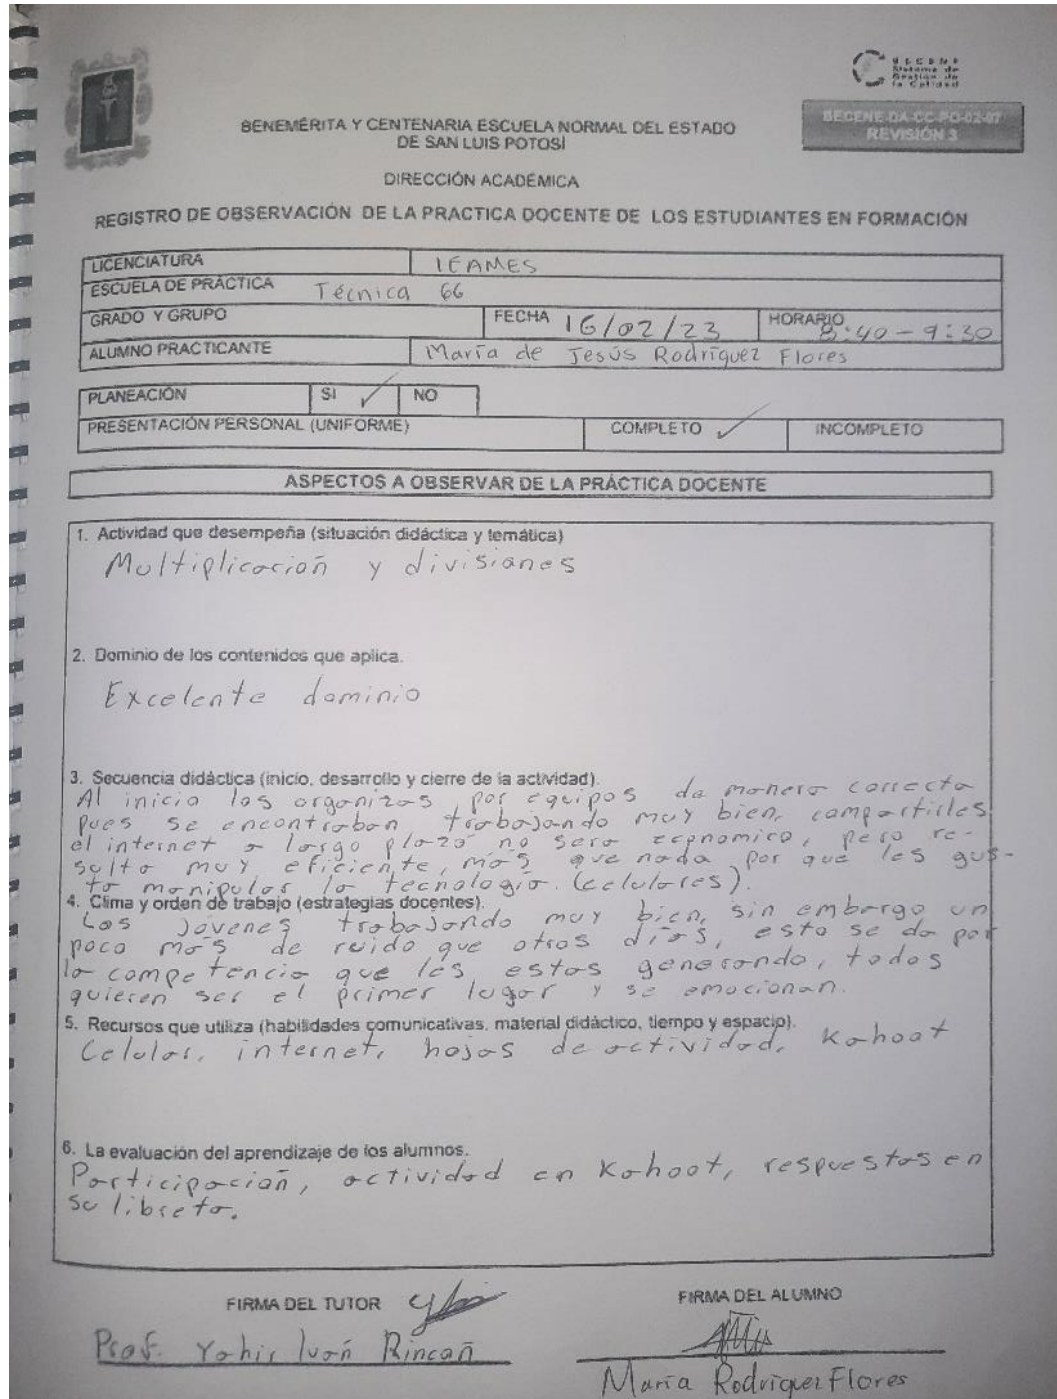 BECENE
Sistema de
Gestión de
la Calidad
BECENE-DA-CC-PO-02-07
REVISIÓN 3
BENEMÉRITA Y CENTENARIA ESCUELA NORMAL DEL ESTADO
DE SAN LUIS POTOSÍ
DIRECCIÓN ACADÉMICA
REGISTRO DE OBSERVACIÓN DE LA PRACTICA DOCENTE DE LOS ESTUDIANTES EN FORMACIÓN
LICENCIATURA LEAMES
ESCUELA DE PRÁCTICA Técnica 66
GRADO Y GRUPO FECHA 16/02/23 HORARIO 8:40-9:30
ALUMNO PRACTICANTE María de Jesús Rodríguez Flores
PLANEACIÓN SI ✓ NO
PRESENTACIÓN PERSONAL (UNIFORME) COMPLETO ✓ INCOMPLETO
ASPECTOS A OBSERVAR DE LA PRÁCTICA DOCENTE
1. Actividad que desempeña (situación didáctica y temática)
Multiplicación y divisiones
2. Dominio de los contenidos que aplica.
Excelente dominio
3. Secuencia didáctica (inicio, desarrollo y cierre de la actividad).
Al inicio los organizas por equipos de manera correcta
pues se encontraban trabajando muy bien, compartirles
el internet a largo plazo no sera economico, pero re-
sulto muy eficiente, más que nada por que les gus-
to manipular la tecnología. (celulares).
4. Clima y orden de trabajo (estrategias docentes).
Los jóvenes trabajando muy bien, sin embargo un
poco más de ruido que otros días, esto se da por
la competencia que les estas generando, todos
quieren ser el primer lugar y se emocionan.
5. Recursos que utiliza (habilidades comunicativas, material didáctico, tiempo y espacio).
Celular, internet, hojas de actividad, Kahoot
6. La evaluación del aprendizaje de los alumnos.
Participación, actividad en Kahoot, respuestas en
su libreta.
FIRMA DEL TUTOR FIRMA DEL ALUMNO
Prof. Yahir Iván Rincón
María Rodríguez Flores